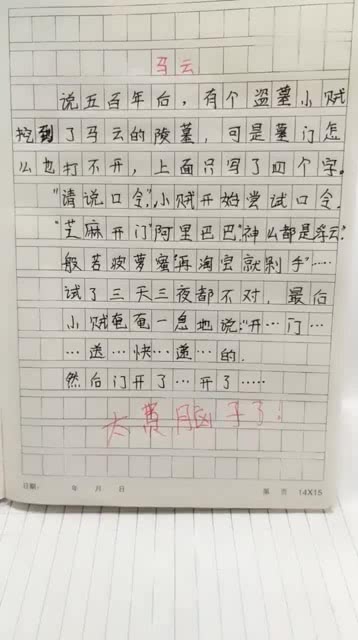 马云
说五百年后，有个盗墓小贼
挖到了马云的陵墓，可是墓门怎
么也打不开，上面只写了四个字。
"请说口令"，小贼开始尝试口令，
"芝麻开门""阿里巴巴""神么都是浮云"
般若波萝蜜"再淘宝就剁手"……
试了三天三夜都不对，最后
小贼奄奄一息地说："开…门…
…送…快…递…的.
然后门开了…开了……
太费脑子了！
日期： 年 月 日 第 页 14X15